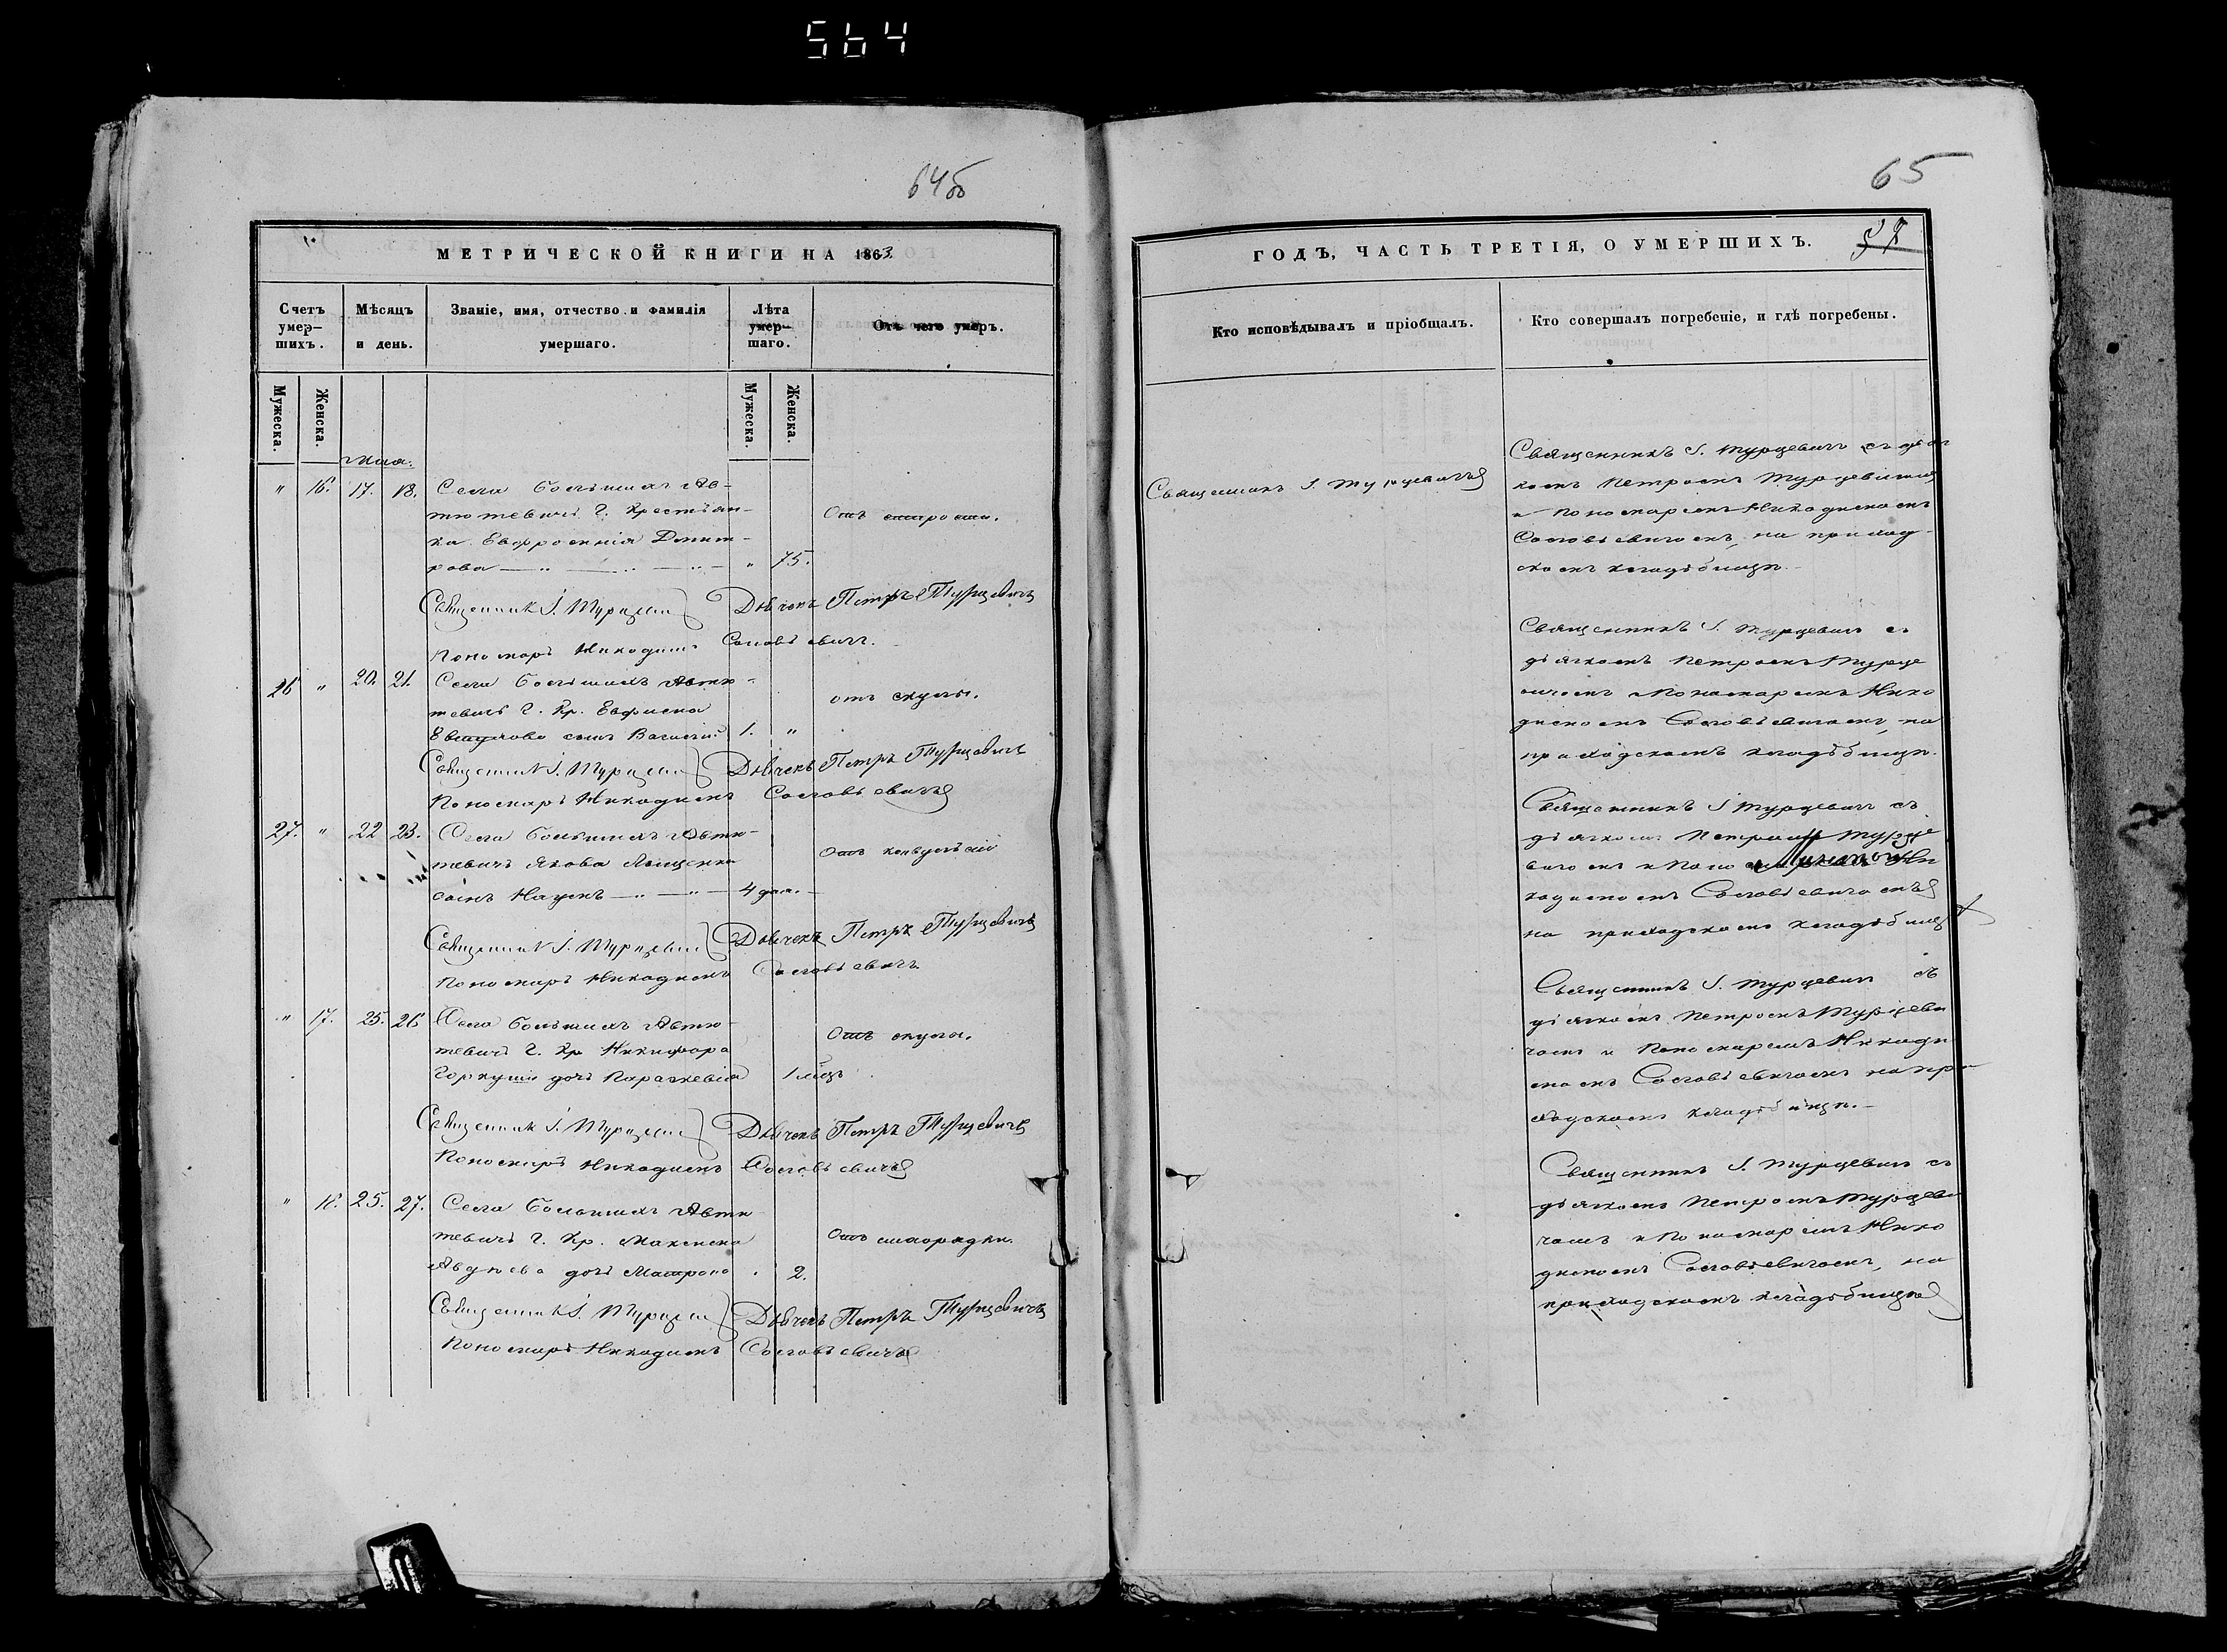 564
64об
65
МЕТРИЧЕСКОЙ КНИГИ НА 1863
ГОДЪ, ЧАСТЬ ТРЕТІЯ, О УМЕРШИХЪ.
Счетъ умер-шихъ.
Мѣсяцъ и день.
Званіе, имя, отчество и фамилія умершаго.
Лѣта умер-шаго.
Отъ чего умеръ.
Кто исповѣдывалъ и пріобщалъ.
Кто совершалъ погребеніе, и гдѣ погребены.
Мужеска.
Женска.
Мужеска.
Женска.
Мая.
" 16. 17. 18. Села Большихъ Ав-
тютевичъ Г. Крестьян-
ка Евфросинія Дмит-
рова " 75.
Отъ старости.
Священникъ І. Турцевичъ
Священникъ І. Турцевичъ съ дьяч
комъ Петромъ Турцевичемъ
и Пономаремъ Никодимомъ
Соловьевичемъ, на приход-
скомъ кладбищѣ.
Священник І. Турцевич Дьячекъ Петръ Турцевичъ
Пономарь Никодимъ Соловьевичъ.
26 " 20. 21. Села Большихъ Автю-
тевичъ Г. Кр. Евфима
сынъ Василій 1. "
отъ скулы.
Священникъ І. Турцевичъ съ
дьячкомъ Петромъ Турце
вичемъ и Пономаремъ Нико
димомъ Соловьевичемъ, на
приходскомъ кладбищѣ.
Священник І. Турцевич Дьячекъ Петръ Турцевичъ
Пономарь Никодимъ Соловьевичъ
27. " 22 23. Села Большихъ Автю-
тевичъ Якова
сынъ Наумъ 4 дня.
Отъ конвульсій
Священникъ І. Турцевичъ съ
дьячкомъ Петромъ Турце
вичемъ и Пономаремъ Ни
кодимомъ Соловьевичемъ
на приходскомъ кладбищѣ
Священник І. Турцевич Дьячекъ Петръ Турцевичъ
Пономарь Никодимъ Соловьевичъ.
" 17. 25. 26 Села Большихъ Автю-
тевичъ Г. Кр. Никифора
Горкуши дочь Параскевія 1 мѣсяцъ
Отъ скулы.
Священникъ І. Турцевичъ съ
дьячкомъ Петромъ Турцеви
чемъ и Пономаремъ Никоди
момъ Соловьевичемъ на при
ходскомъ кладбищѣ.
Священник І. Турцевич Дьячекъ Петръ Турцевичъ
Пономарь Никодимъ Соловьевичъ
" 18. 25. 27. Села Большихъ Автю
тевичъ Г. Кр. Максима
Авдѣева дочь Матрона 2.
Отъ лихорадки.
Священникъ І. Турцевичъ съ
дьячкомъ Петромъ Турцеви
чемъ и Пономаремъ Нико
димомъ Соловьевичемъ, на
приходскомъ кладбищѣ
Священник І. Турцевич Дьячекъ Петръ Турцевичъ
Пономарь Никодимъ Соловьевичъ